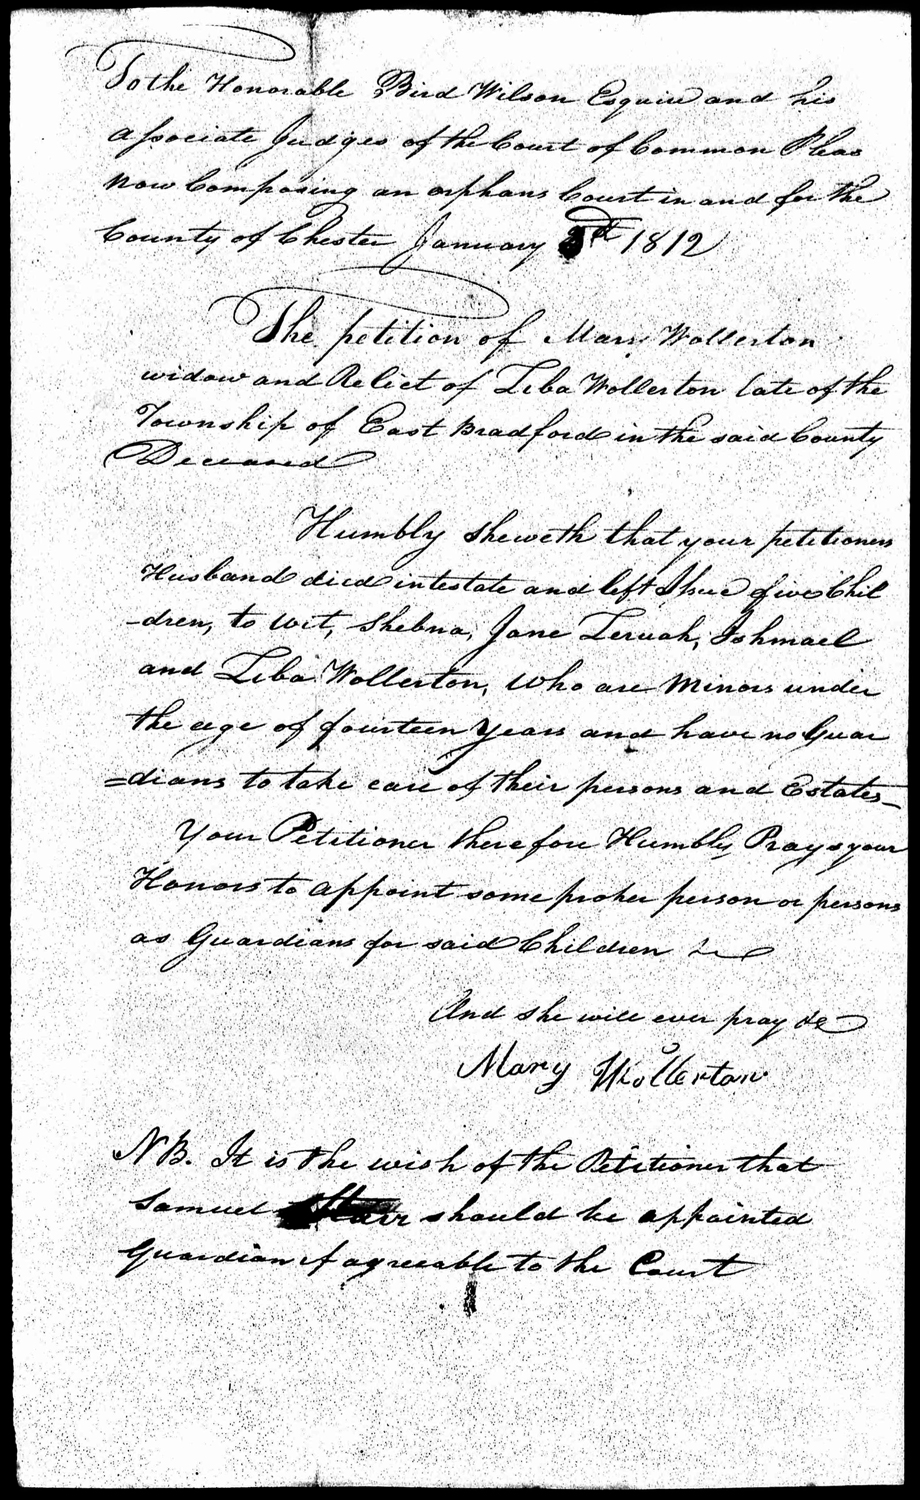 To the Honorable Bird Wilson Esquire and his
associate Judges of the Court of Common Pleas
now Composing an orphans Court in and for the
County of Chester January 3rd 1812
The petition of Mary Wollerton
widow and Relict of Ziba Wollerton late of the
Township of East Bradford in the said County
Deceased
Humbly Sheweth that your petitioners
Husband died intestate and left Issue five Chil
-dren, to wit, Shebna, Jane Zeruah, Ishmael
and Ziba Wollerton, who are Minors under
the age of fourteen years and have no Guar
=dians to take care of their persons and Estates_
Your Petitioner therefore Humbly Prays your
Honors to appoint some proper person or persons
as Guardians for said Children &c
And she will ever pray &c
Mary Wollerton
NB. It is the wish of the Petitioner that
Samuel Starr should be appointed
Guardian if agreeable to the Court